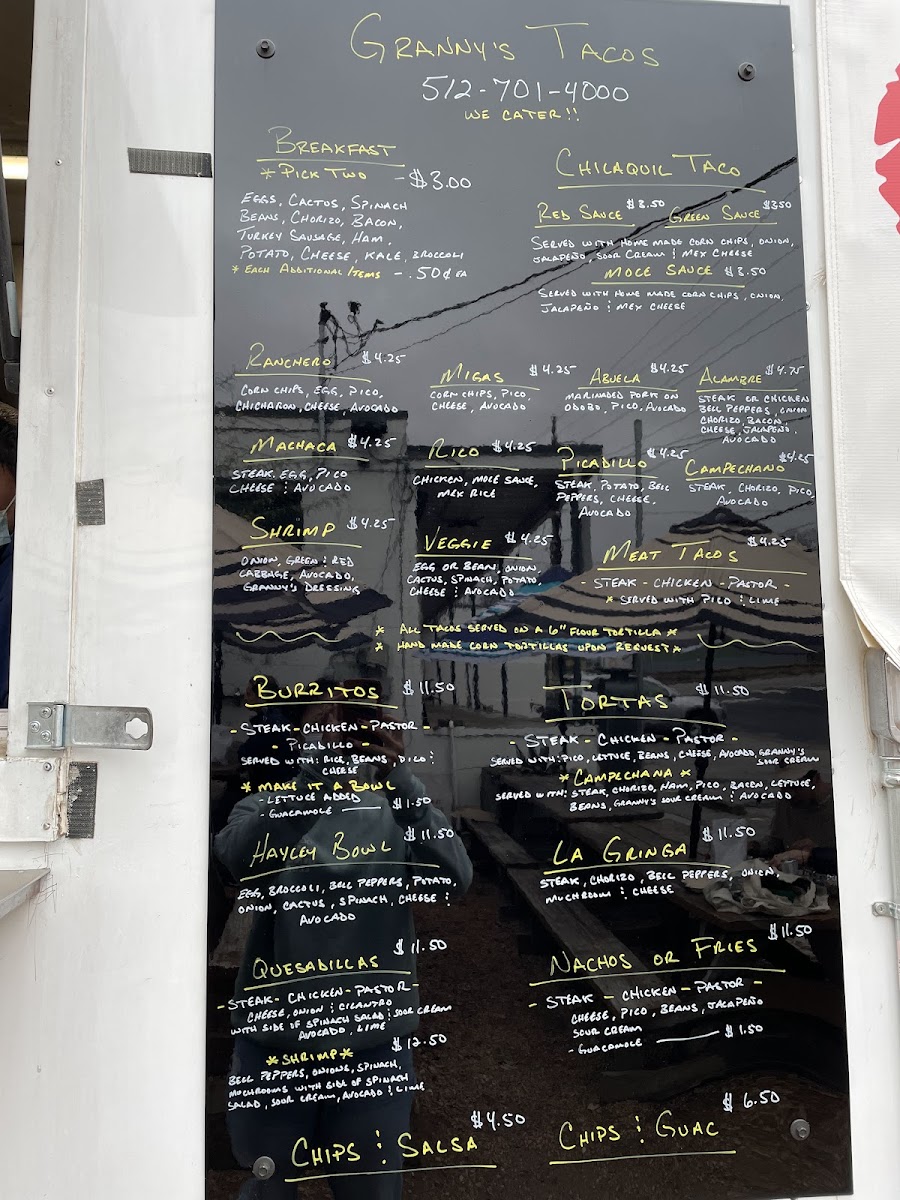 GRANNY'S TACOS
512-701-4000
WE CATER!!
BREAKFAST
*PICK TWO -$3.00
EGGS, CACTUS, SPINACH
BEANS, CHORIZO, BACON,
TURKEY SAUSAGE, HAM,
POTATO, CHEESE, KALE, BROCCOLI
*EACH ADDITIONAL ITEMS -.50¢ EA
CHILAQUIL TACO
RED SAUCE $3.50 GREEN SAUCE $350
SERVED WITH HOME MADE CORN CHIPS, ONION,
JALAPEÑO, SOUR CREAM & MEX CHEESE
MOLE SAUCE $3.50
SERVED WITH HOME MADE CORN CHIPS, ONION,
JALAPEÑO & MEX CHEESE
RANCHERO $4.25
CORN CHIPS, EGG, PICO,
CHICHARON, CHEESE, AVOCADO
MIGAS $4.25
CORN CHIPS, PICO,
CHEESE, AVOCADO
ABUELA $4.25
MARINADED PORK ON
ODOBO, PICO, AVOCADO
ALAMBRE $4.75
STEAK OR CHICKEN
BELL PEPPERS, ONION
CHORIZO, BACON,
CHEESE, JALAPEÑO,
AVOCADO
MACHACA $4.25
STEAK, EGG, PICO
CHEESE & AVOCADO
RICO $4.25
CHICKEN, MOLE SAUCE,
MEX RICE
PICADILLO $4.25
STEAK, POTATO, BELL
PEPPERS, CHEESE,
AVOCADO
CAMPECHANO $4.25
STEAK, CHORIZO, PICO,
AVOCADO
SHRIMP $4.25
ONION, GREEN & RED
CABBAGE, AVOCADO,
GRANNY'S DRESSING
VEGGIE $4.25
EGG OR BEAN, ONION,
CACTUS, SPINACH, POTATO,
CHEESE & AVOCADO
MEAT TACOS $4.25
- STEAK - CHICKEN - PASTOR -
* SERVED WITH PICO & LIME
* ALL TACOS SERVED ON A 6" FLOUR TORTILLA *
* HAND MADE CORN TORTILLAS UPON REQUEST *
BURRITOS $11.50
- STEAK - CHICKEN - PASTOR -
- PICADILLO -
SERVED WITH: RICE, BEANS, PICO &
CHEESE
* MAKE IT A BOWL
- LETTUCE ADDED
- GUACAMOLE — $1.50
TORTAS $11.50
- STEAK - CHICKEN - PASTOR -
SERVED WITH: PICO, LETTUCE, BEANS, CHEESE, AVOCADO, GRANNY'S
SOUR CREAM
* CAMPECHANA *
SERVED WITH: STEAK, CHORIZO, HAM, PICO, BACON, LETTUCE,
BEANS, GRANNY'S SOUR CREAM & AVOCADO
HAYLEY BOWL $11.50
EGG, BROCCOLI, BELL PEPPERS, POTATO,
ONION, CACTUS, SPINACH, CHEESE &
AVOCADO
LA GRINGA $11.50
STEAK, CHORIZO, BELL PEPPERS, ONION,
MUCHROOM & CHEESE
QUESADILLAS $11.50
- STEAK - CHICKEN - PASTOR -
CHEESE, ONION & CILANTRO
WITH SIDE OF SPINACH SALAD & SOUR CREAM
AVOCADO, LIME
*SHRIMP* $12.50
BELL PEPPERS, ONIONS, SPINACH,
MUCHROOMS WITH SIDE OF SPINACH
SALAD, SOUR CREAM, AVOCADO & LIME
NACHOS OR FRIES $11.50
- STEAK - CHICKEN - PASTOR -
CHEESE, PICO, BEANS, JALAPEÑO
SOUR CREAM
- GUACAMOLE — $1.50
CHIPS & SALSA $4.50
CHIPS & GUAC $6.50